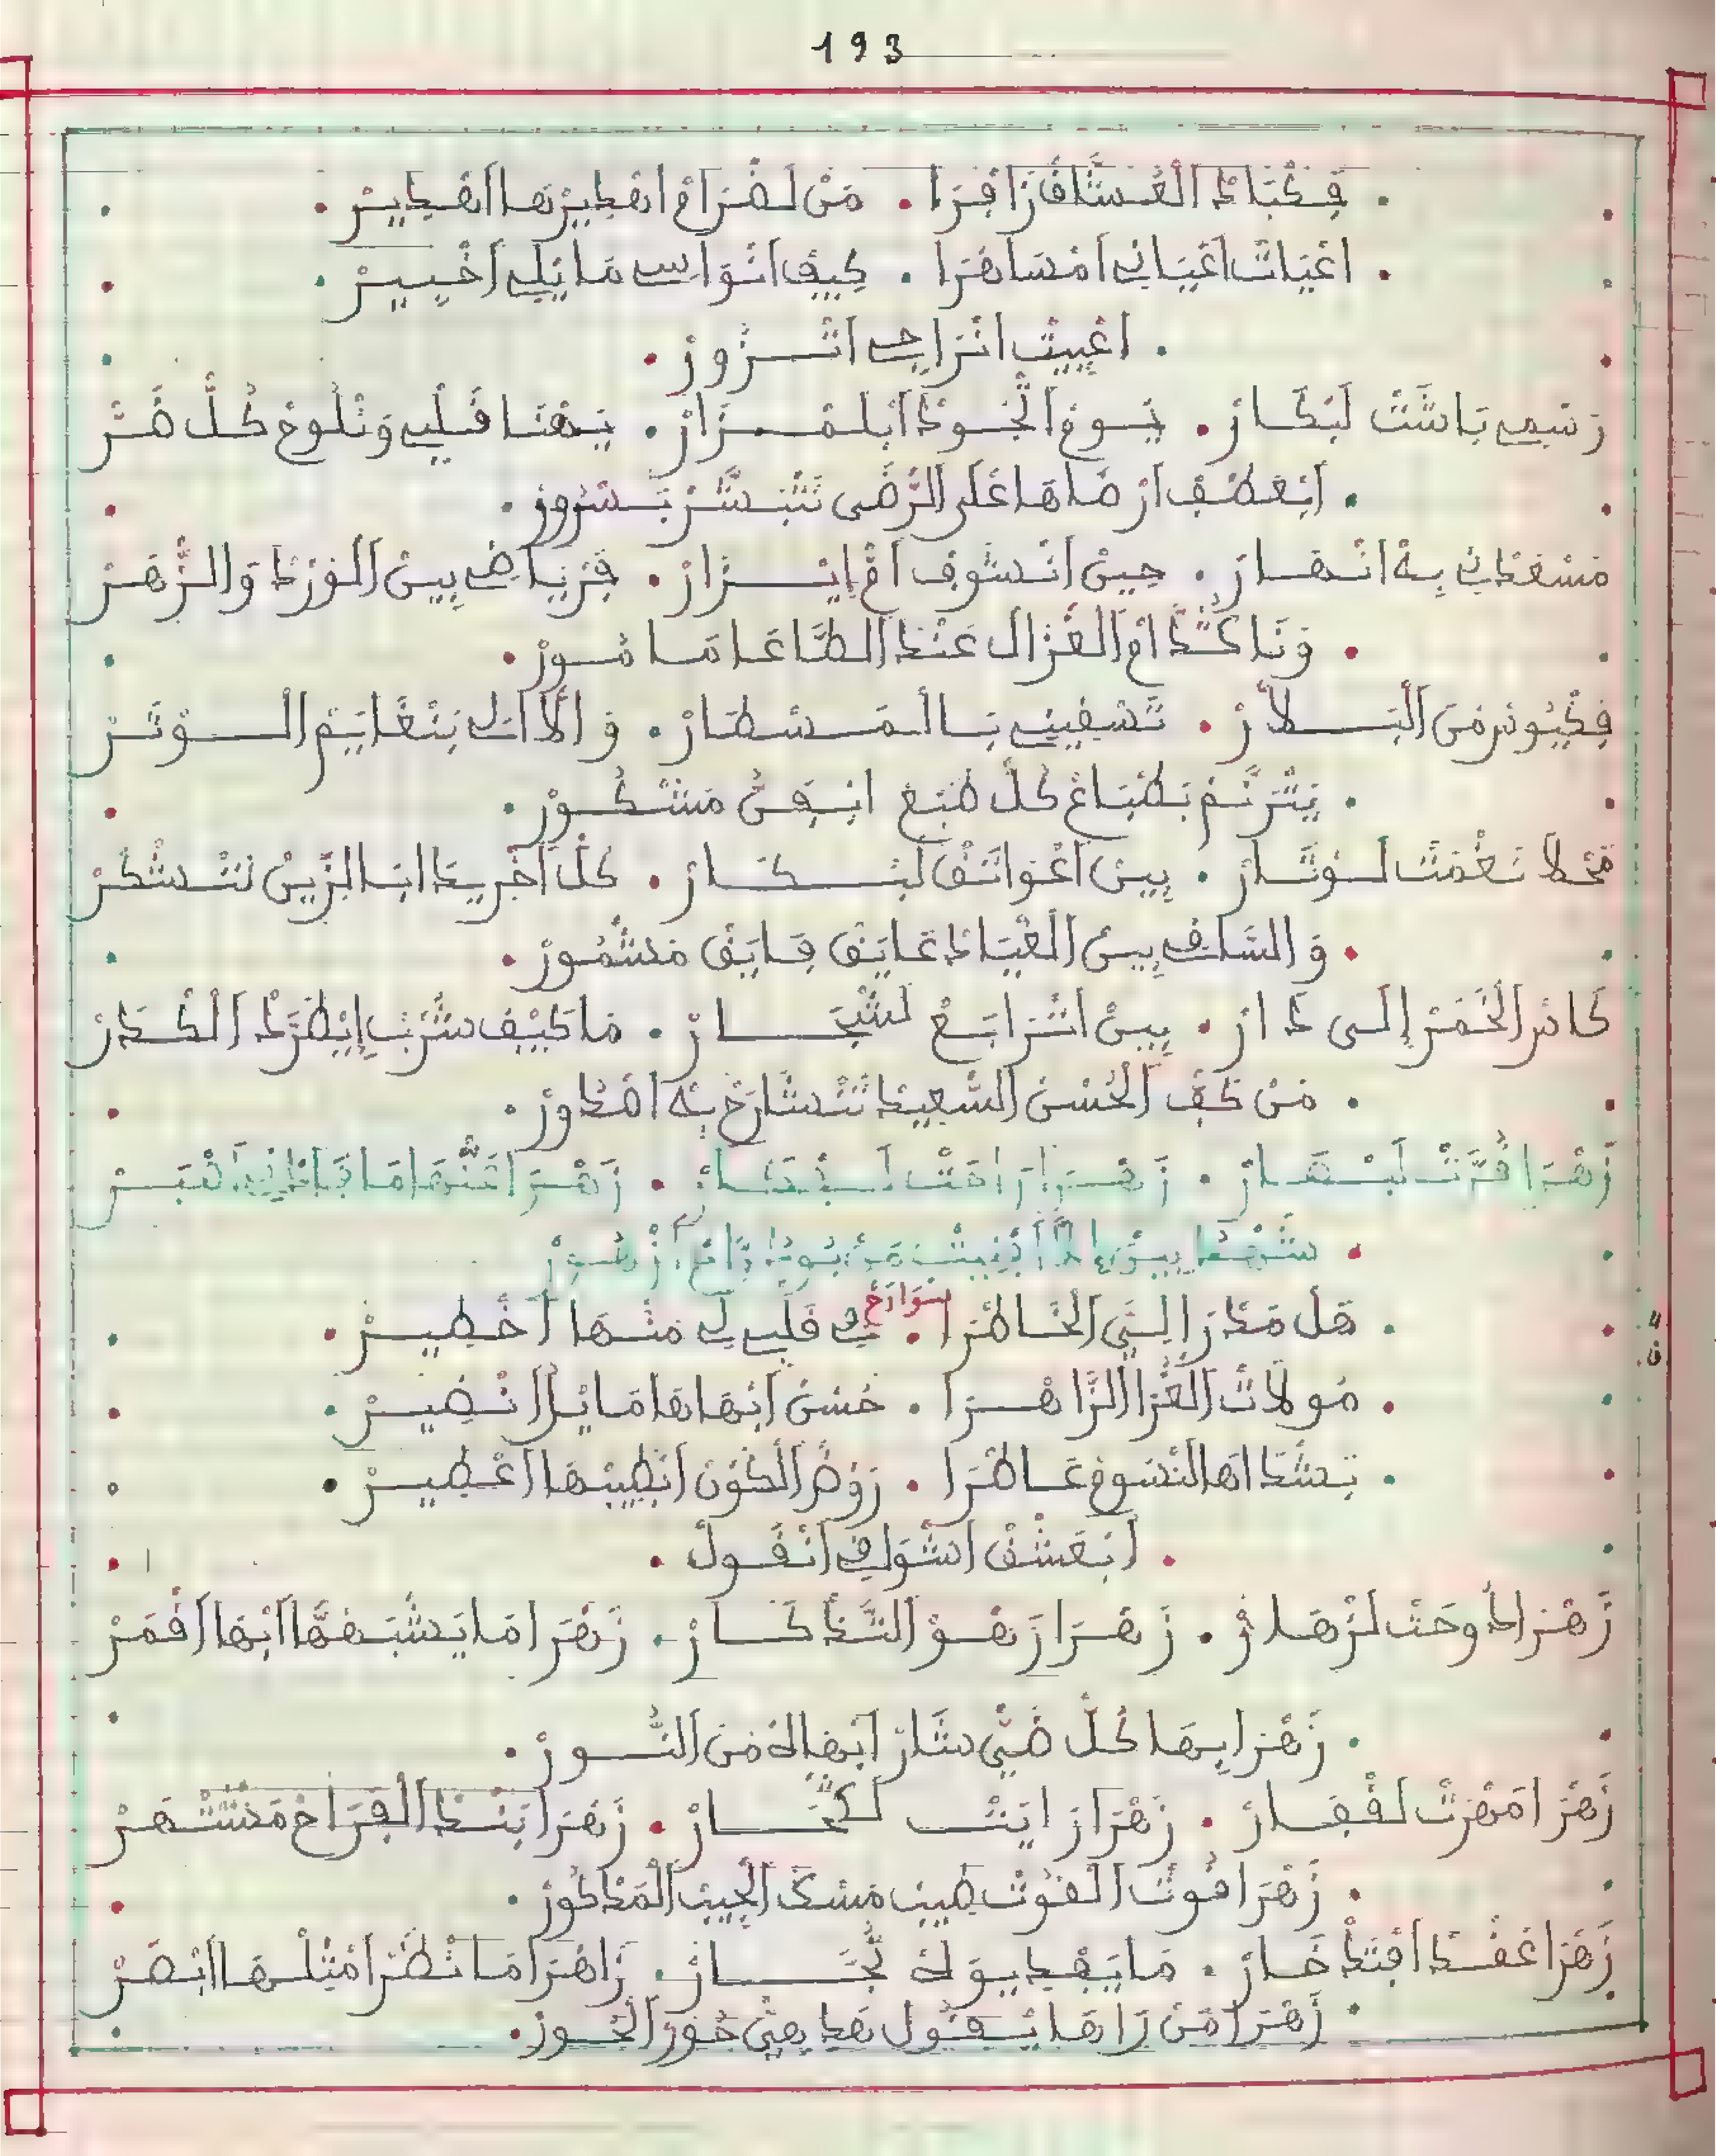 193
فكباد العشاق زافرا . من لغرام اهديرها اهدير .
اعيات اعياني امساهرا . كيف انواسي ما يلي اخبير .
اعييت انراجي اتزور .
رسمي باشت لبكار . يوم الجود ابلمزار . يهنا قلبي وتلوح كل ضر
ابعطف ارضاها على الرضى نتبشر بسرور .
مسعدني به انهار . حين انشوف ام ايزار . فرياض بين الورد والزهر
ونا كدام الغزال عند الطاعا مامور .
فكيوس من البلار . تسقيني بالمسطار . والالى بنغايم الوتر
يترنم بطباع كل طبع ابفن مشكور .
محلا نغمت لوتار . بين اعواتق لبكار . كل اخريدا ابا الزين تتشكر
والساقي بين الغياد عايق فايق مشمور .
كاس الخمر إلى دار . بين اترابع لشجار . ما كيف شرب إيطرد الكدر
من كف الحسن السعيد تتشارح به اصدور .
زهرا قرت لبصار . زهرا راحت لبدار . زهرا عنها ما فادني اصبر
هل مدرا ليني الخاطرا . في قلبي لي منها اخطير .
سوارح
مولات الغرا الزاهرا . حسن ابهاها ما يلا انضير .
بشداها النسوم عاطرا . روض الكون ابطيبها اعطير .
ابعشق اشواقي انقول .
زهرا دوحت لزهار . زهرا زهو التدكار . زهرا ما يشبهها ابها اقمر
زهرا بها كل ضي سار ابهاله من النور .
زهرا مهرت لقفار . زهرا رايت لكحار . زهرا بند الفراح منتشهر
زهرا قوت القوت طيب مسك الجيب المدكور .
زهرا عقد افتدخار . ما يفديوله تجار . زاهرا ما تنظر امثلها ابصر
زهرا من راها يقول هدا هي حور الحور .